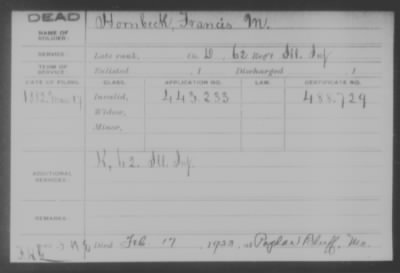 DEAD
NAME OF SOLDIER: Hornbeck, Francis M.
SERVICE: Late rank, Co. D, 62 Reg't Ill. Inf.
TERM OF SERVICE: Enlisted , 1 Discharged , 1
DATE OF FILING. CLASS. APPLICATION NO. LAW. CERTIFICATE NO.
Invalid, 443.233 488.729
Widow,
Minor,
ADDITIONAL SERVICES: K, 62 Ill. Inf.
REMARKS:
Died Feb 17, 1923, at Poplar Bluff, Mo.